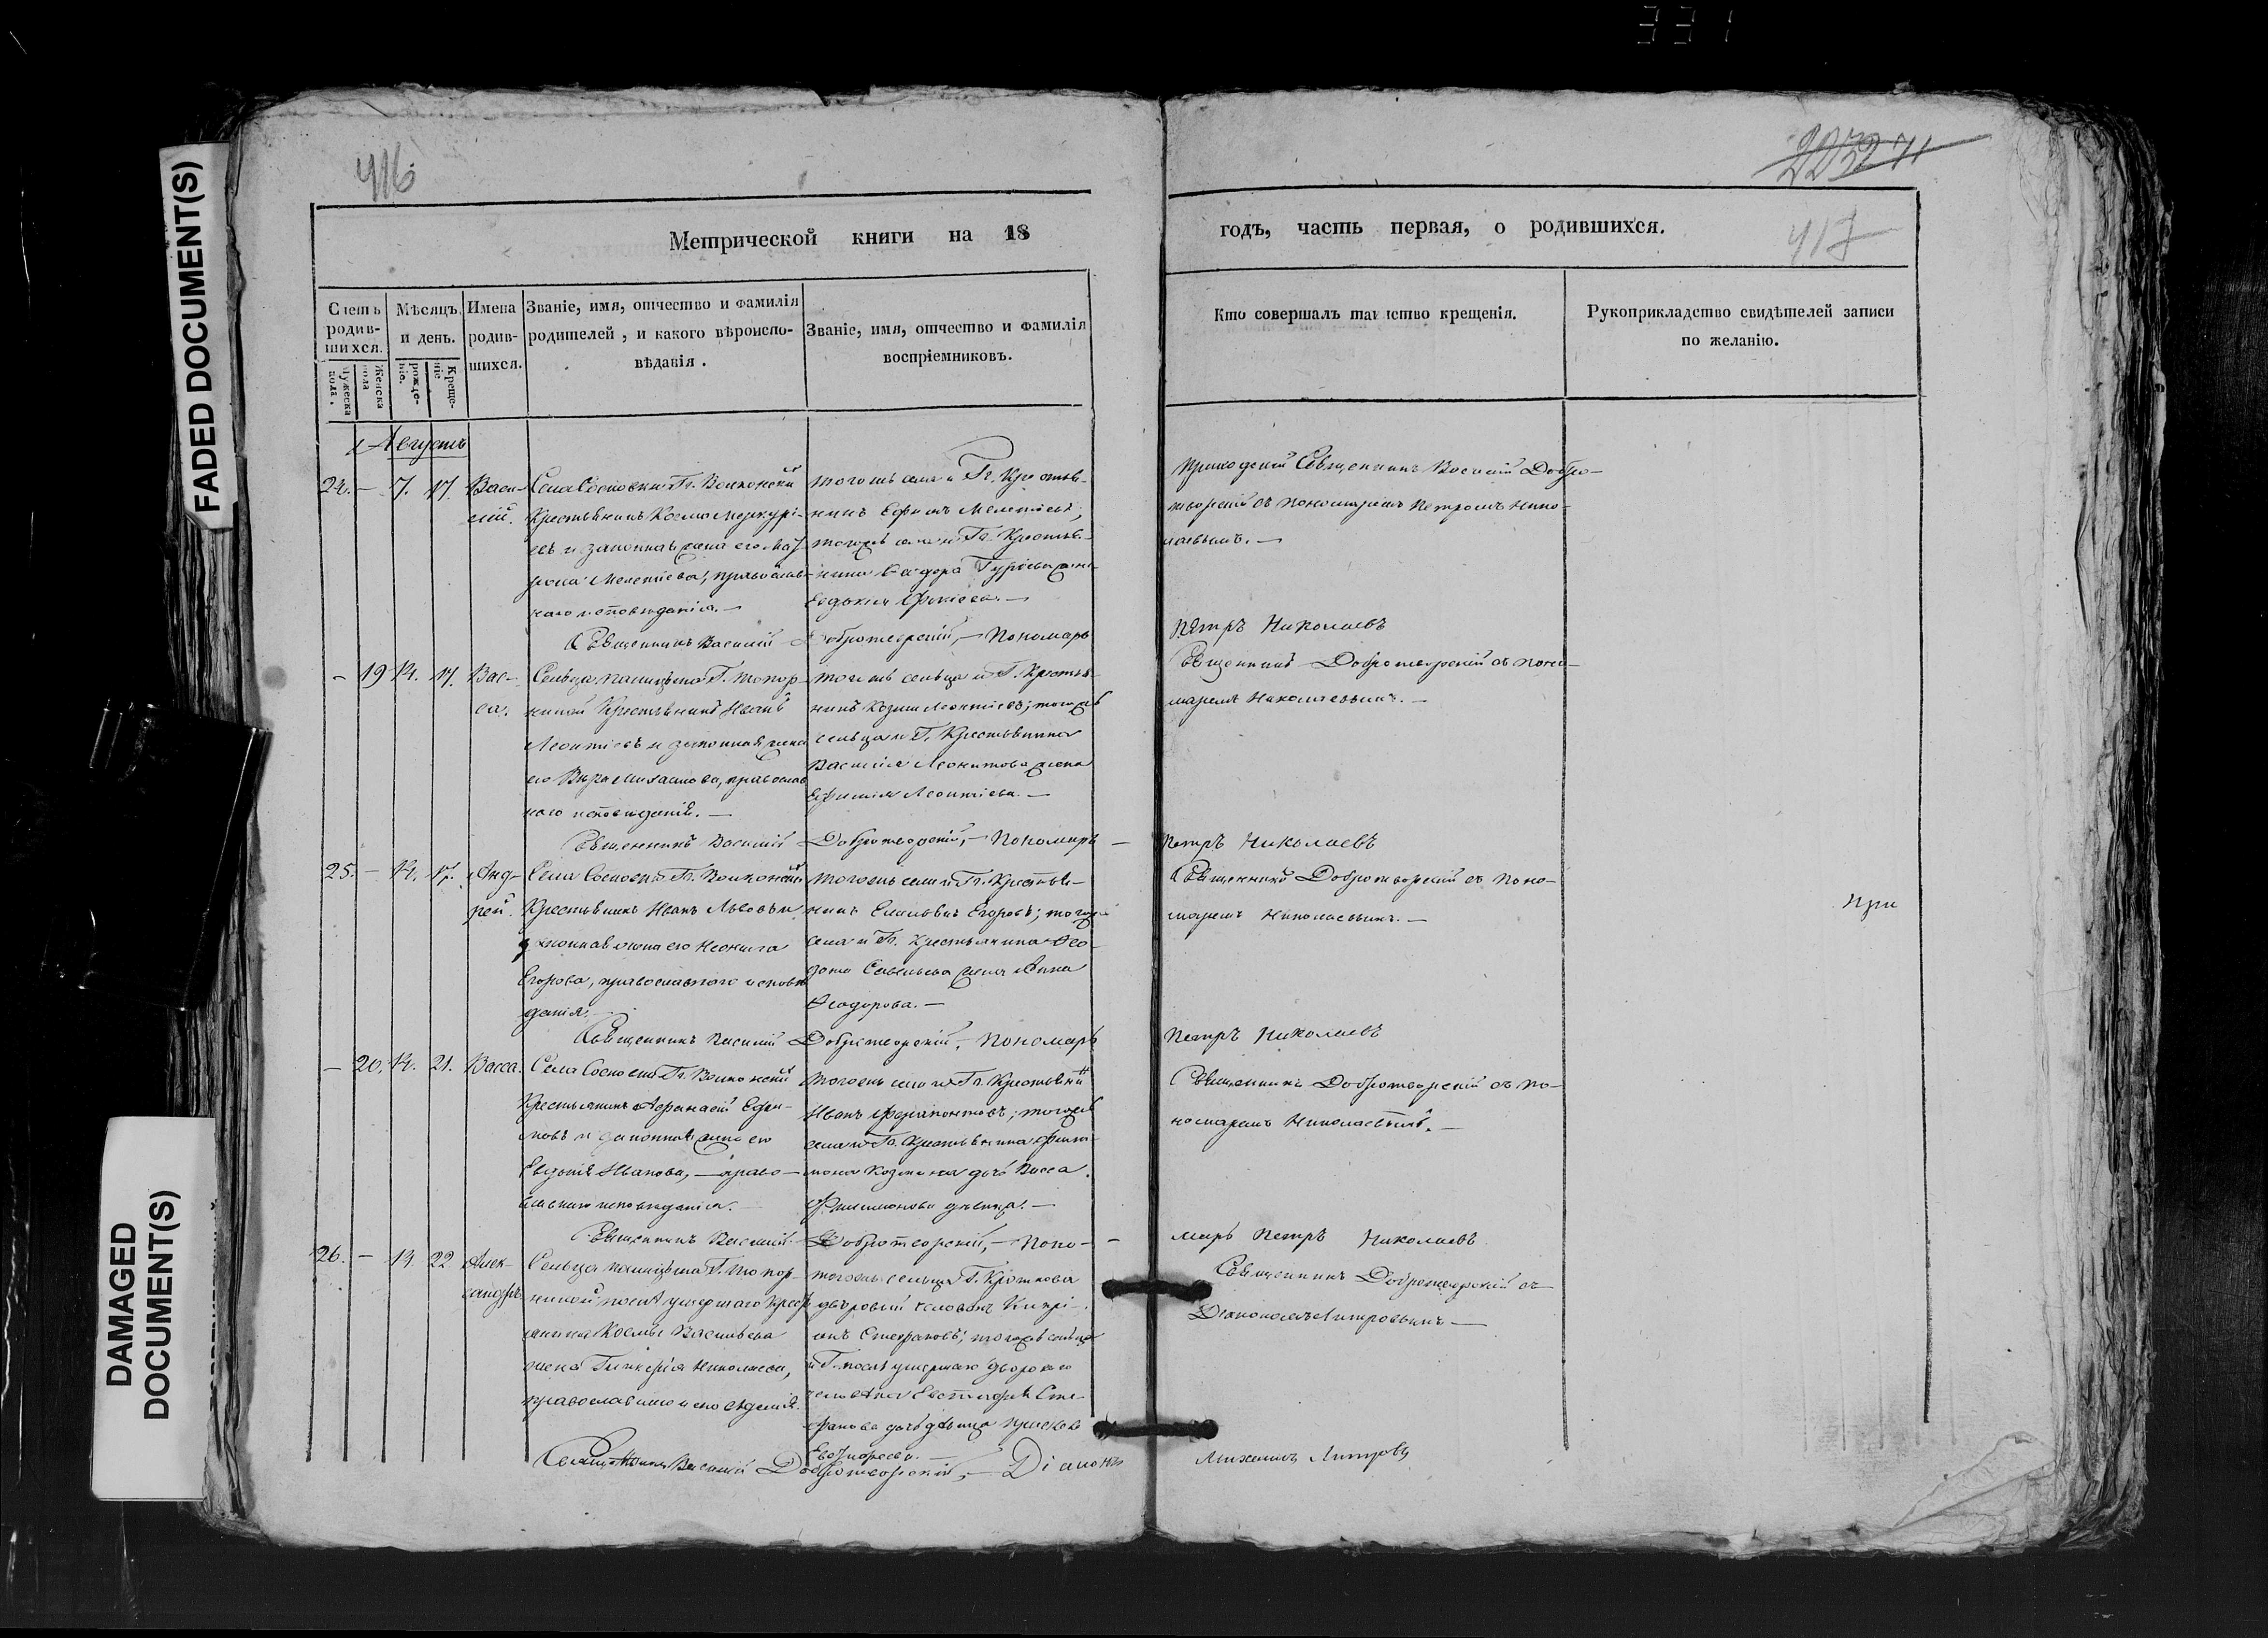 331
FADED DOCUMENT(S)
DAMAGED
DOCUMENT(S)
416
417
Метрической книги на 18
годъ, часть первая, о родившихся.
Счетъ родившихся.
Мужеска пола.
Женска пола
Мѣсяцъ и день.
рожденіе.
Крещеніе
Имена родившихся.
Званіе, имя, отчество и фамилія родителей, и какого вѣроисповѣданія.
Званіе, имя, отчество и фамилія воспріемниковъ.
Кто совершалъ таинство крещенія.
Рукоприкладство свидѣтелей записи по желанію.
Августъ
24. – 7. 17. Васи-
лій.
Села Сосновки Гг. Волконски
Крестьянинъ Косма Меркурі-
евъ и законная жена его Мат-
рона Мелетіева, православ-
наго исповѣданія. —
тогожъ села и Гг. Крестья-
нинъ Ефимъ Мелетіевъ;
тогожъ села и Гг. Крестья-
нина Ѳеодора Гуріева жена
Евдокія
Приходскій Священникъ Василій Добро-
творскій съ пономаремъ Петромъ Нико-
лаевымъ. —
Священникъ Василій Добротворскій, — Пономарь
Петръ Николаевъ
– 19 14. 17. Вас-
са.
Сельца Г. Топор-
ниной Крестьянинъ Иванъ
Леонтіевъ и законная жена
его Вѣра Михайлова, православ
наго исповѣданія. —
тогожъ сельца и Г. Крестья-
нинъ Козма Леонтіевъ; тогожъ
сельца и Г. Крестьянина
Василія Леонтіева жена
Ефимія Леонтіева. —
Священникъ Добротворскій съ поно-
маремъ Николаевымъ. —
Священникъ Василій Добротворскій, — Пономарь —
Петръ Николаевъ
25. – 14. 17. Анд-
рей.
Села Сосновки Гг. Волконски
Крестьянинъ Иванъ Львовъ и
законная жена его Неонила
Егорова, православнаго исповѣ
данія. —
тогожъ села и Гг. Крестья-
нинъ Егоровъ; тогожъ
села и Гг. Крестьянина Ѳео-
дота Савельева жена Анна
Ѳеодорова. —
Священникъ Добротворскій съ поно-
маремъ Николаевымъ. —
при
Священникъ Василій Добротворскій, Пономарь
Петръ Николаевъ
– 20. 14. 21. Васса.
Села Сосновки Гг. Волконски
Крестьянинъ Афанасій Ефи-
мовъ и законная жена его
Евдокія Иванова, — право-
славнаго исповѣданія. —
тогожъ села и Гг. Крестьянинъ
Иванъ Ферапонтовъ; тогожъ
села и Гг. Крестьянина Фили-
мона Козмина дочь Васса
Филимонова дѣвица. —
Священникъ Добротворскій съ по-
номаремъ Николаевымъ. —
Священникъ Василій Добротворскій, — Поно- —
марь Петръ Николаевъ
26. – 14 22 Алек-
сандръ
Сельца Г. Топор-
ниной послѣ умершаго Крест
янина Космы Васильева
жена Гликерія Николаева,
православнаго исповѣданія.
тогожъ сельца Г. Кроткова
дворовый человѣкъ Кипрі-
анъ Стефановъ; тогожъ сельца
и Г. послѣ умершаго двороваго
человѣка Евстафія Сте-
фанова дочь дѣвица
Священникъ Добротворскій съ
Діакономъ —
Священникъ Василій Добротворскій, — Діаконъ
Михаилъ